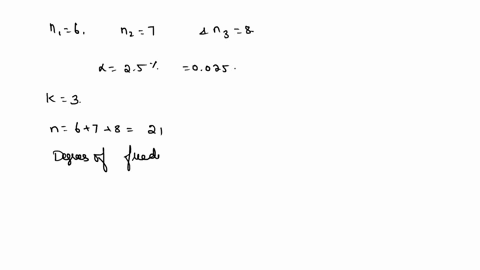 n₁=6, n₂=7 & n₃=8
α= 2.5% =0.025
K=3
n= 6+7+8= 21
Degrees of freed